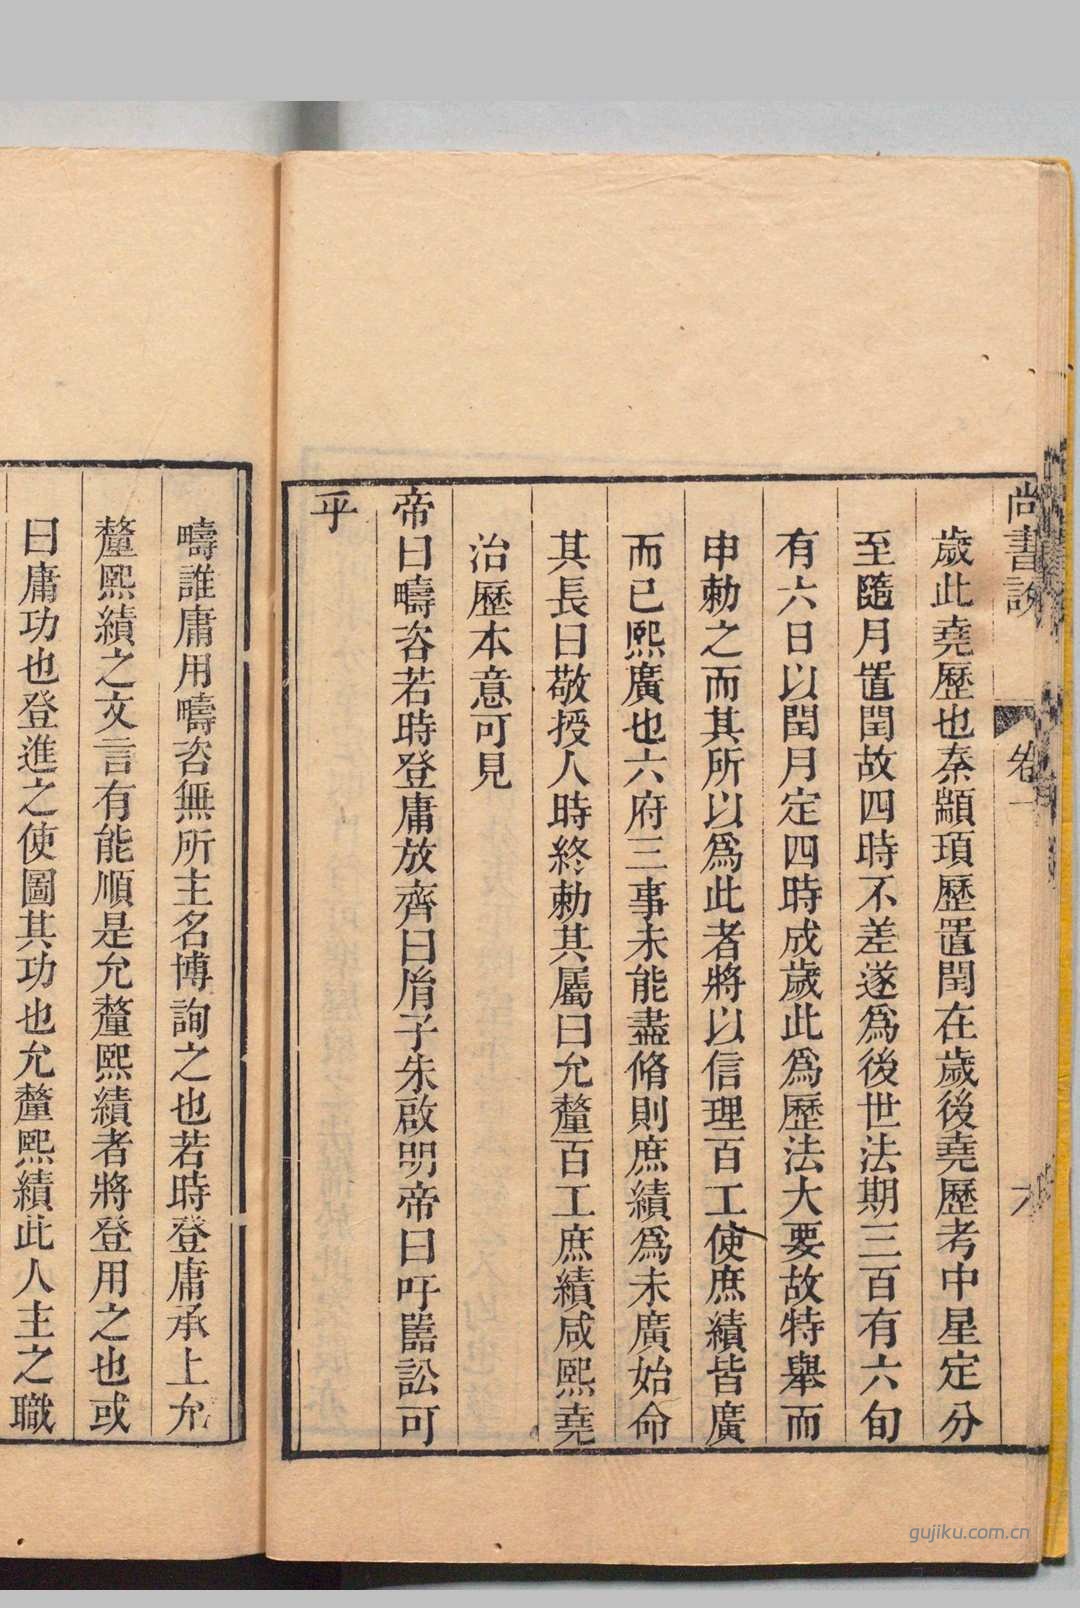 尚書說
卷一
六
歲此堯歷也秦顓頊歷置閏在歲後堯歷考中星定分
至隨月置閏故四時不差遂爲後世法期三百有六旬
有六日以閏月定四時成歲此爲歷法大要故特舉而
申勅之而其所以爲此者將以信理百工使庶績皆廣
而已熙廣也六府三事未能盡脩則庶績爲未廣始命
其長曰敬授人時終勅其屬曰允釐百工庶績咸熙堯
治歷本意可見
帝曰疇咨若時登庸放齊曰胤子朱啟明帝曰吁嚚訟可
乎
疇誰庸用疇咨無所主名博詢之也若時登庸承上允
釐熙績之文言有能順是允釐熙績者將登用之也或
曰庸功也登進之使圖其功也允釐熙績此人主之職
gujiku.com.cn